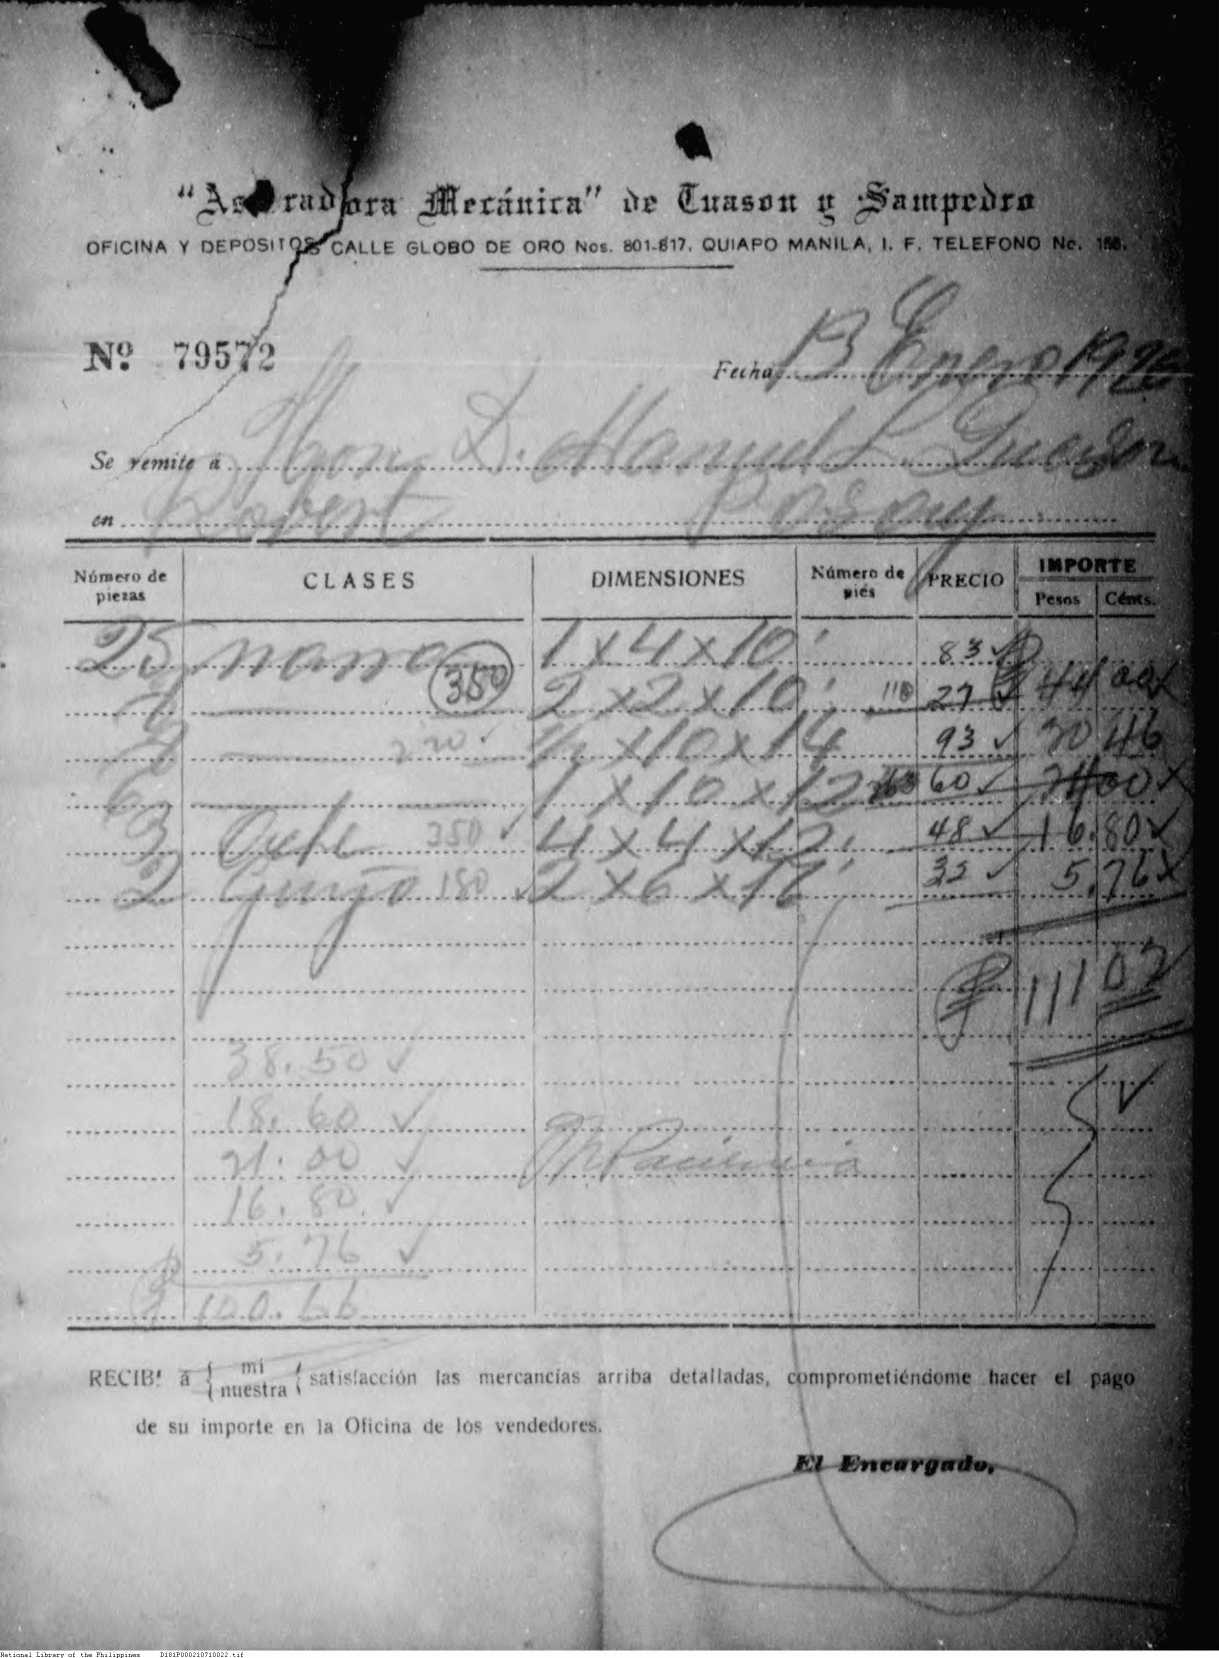 "Aserradora Mecánica" de Tuason y Sampedro
OFICINA Y DEPOSITOS CALLE GLOBO DE ORO Nos. 801-817, QUIAPO MANILA, I. F. TELEFONO No. 156.
Nº 79572
Fecha 13 Enero 1926
Se remite á Hon. D. Manuel L. Quezon
en Pasay
Número de piezas CLASES DIMENSIONES Número de piés PRECIO IMPORTE
Pesos Cénts.
25 1 x 4 x 10' 83
350 2 x 2 x 10' 110 27 44 00
2 220 1/2 x 10 x 14 93 20 46
6 1 x 10 x 12 60 24 00
3 350 4 x 4 x 12' 48 16.80
2 Guijo 180 2 x 6 x 16' 32 5.76
₱ 111 02
38.50
18.60
21.00
16.80
5.76
₱ 100.66
RECIBÍ á { mi nuestra } satisfacción las mercancías arriba detalladas, comprometiéndome hacer el pago
de su importe en la Oficina de los vendedores.
El Encargado,
National Library of the Philippines D181P000210710022.tif